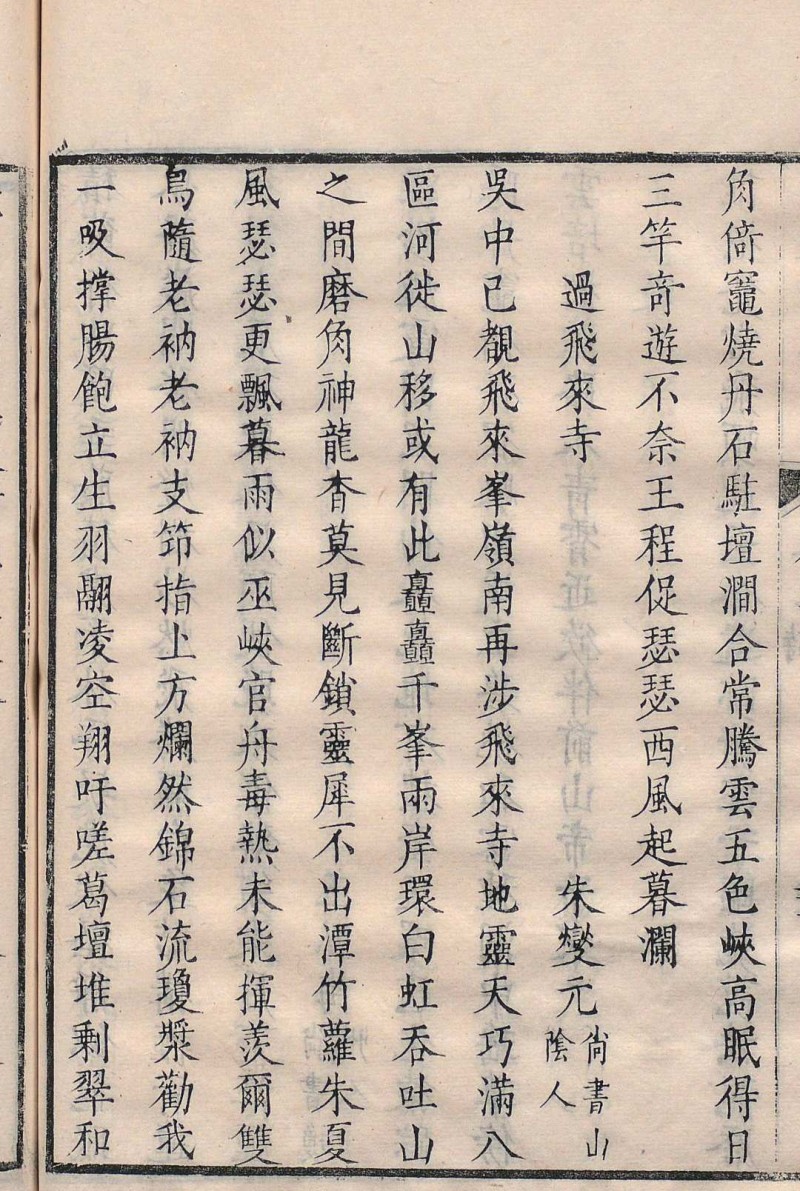 角倚竈燒丹石駐壇澗合常騰雲五色峽高眠得日
三竿奇遊不奈王程促瑟瑟西風起暮瀾
過飛來寺 朱燮元尚書山陰人
吳中已覩飛來峯嶺南再涉飛來寺地靈天巧滿八
區河徙山移或有此矗矗千峯兩岸環白虹吞吐山
之間磨角神龍杳莫見斷鎖靈犀不出潭竹蘿朱夏
風瑟瑟更飄暮雨似巫峽官舟毒熱未能揮羨爾雙
鳥隨老衲老衲支笻指上方爛然錦石流瓊漿勸我
一吸撑腸飽立生羽翮凌空翔吁嗟葛壇堆剩翠和